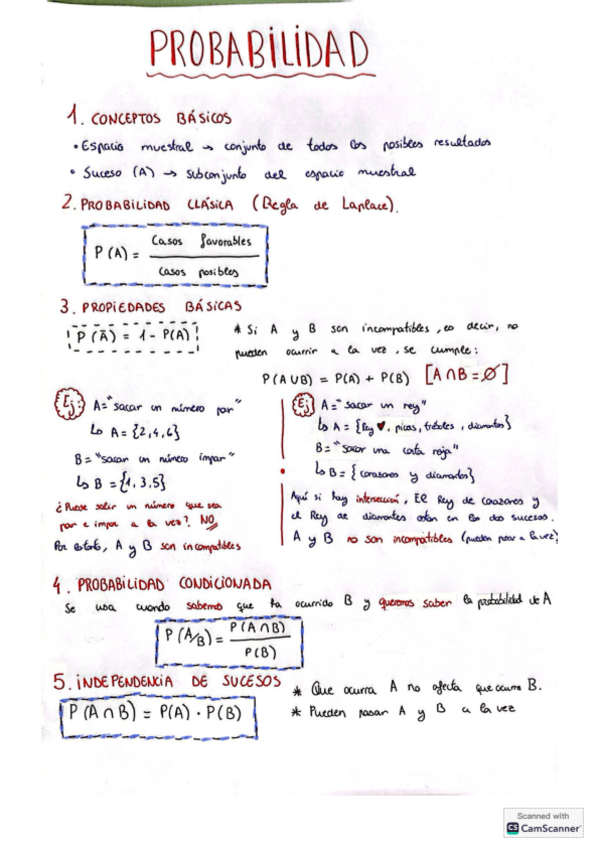 PROBABILIDAD
1. CONCEPTOS BÁSICOS
• Espacio muestral → conjunto de todos los posibles resultados
• Suceso (A) → subconjunto del espacio muestral
2. PROBABILIDAD CLÁSICA (Regla de Laplace).
P(A) = Casos favorables / Casos posibles
3. PROPIEDADES BÁSICAS
P(Ā) = 1 - P(A)
* Si A y B son incompatibles, es decir, no
pueden ocurrir a la vez, se cumple:
P(A∪B) = P(A) + P(B) [A∩B = Ø]
Ej: A = "sacar un número par"
↳ A = {2,4,6}
B = "sacar un número impar"
↳ B = {1,3,5}
¿Puede salir un número que sea
par e impar a la vez? NO,
Por tanto, A y B son incompatibles
Ej: A = "sacar un rey"
↳ A = {Rey ♥, picas, tréboles, diamantes}
B = "sacar una carta roja"
↳ B = {corazones y diamantes}
Aquí si hay intersección, El Rey de corazones y
el Rey de diamantes están en los dos sucesos.
A y B no son incompatibles (pueden pasar a la vez)
4. PROBABILIDAD CONDICIONADA
Se usa cuando sabemos que ha ocurrido B y queremos saber la probabilidad de A
P(A/B) = P(A∩B) / P(B)
5. INDEPENDENCIA DE SUCESOS
* Que ocurra A no afecta que ocurra B.
* Pueden pasar A y B a la vez
P(A∩B) = P(A) · P(B)
Scanned with
CS CamScanner